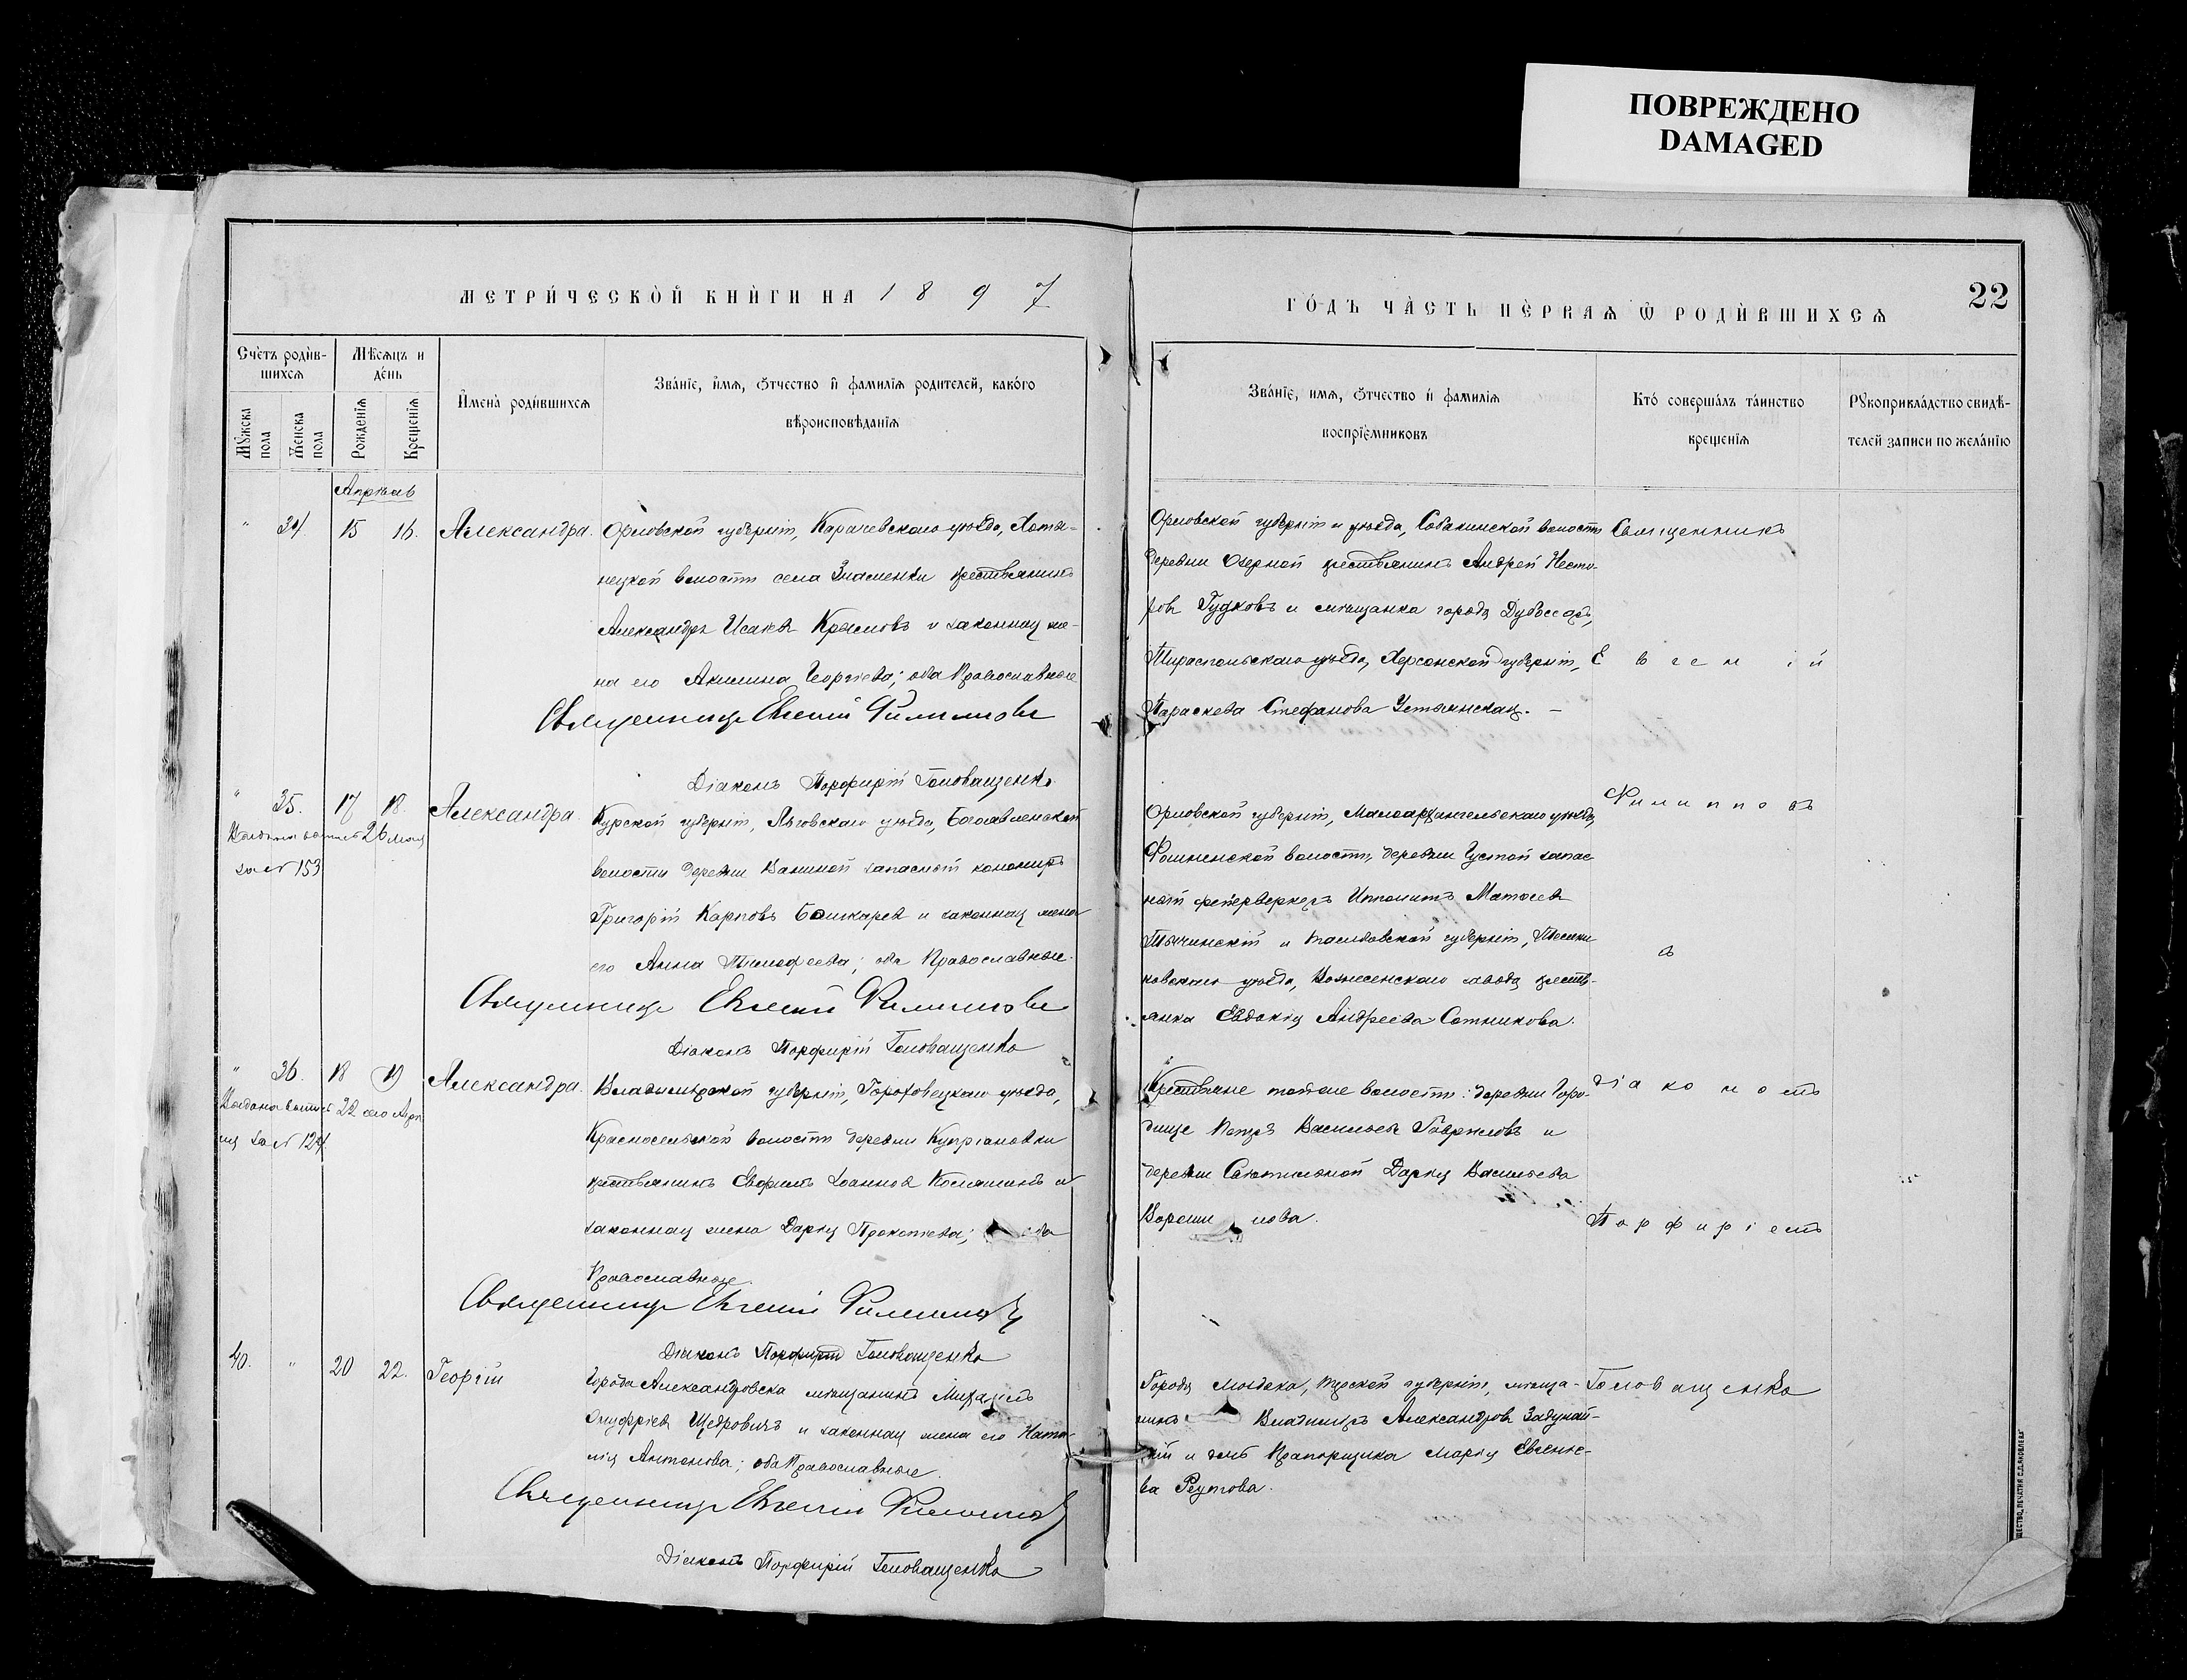 ПОВРЕЖДЕНО
DAMAGED
МЕТРИ́ЧЕСКОЙ КНИ́ГИ НА 1897
ГО́ДЪ ЧА́СТЬ ПЕ́РВАѦ Ѿ РОДИ́ВШИХСѦ
22
Сче́тъ роди́в-
шихсѧ
Мѣ́сѧцъ и
де́нь
Мꙋ́жска
пола
Же́нска
пола
Рожденїѧ
Крещенїѧ
И҆мена̀ роди́вшихсѧ
Зва́нїе, и҆́мѧ, ѻ҆́тчество и҆ фамилїѧ родителей, како́го
вѣроисповѣ́данїѧ
Зва́нїе, имѧ, ѻ҆́тчество и҆ фамилїѧ
воспрїе́мниковъ
Кто́ соверша́лъ та́инство
крещенїѧ
Рꙋкоприкла́дство свидѣ́-
телей записи по жела́нїю
Апрѣль
" 34 15 16. Александра.
Орловской губерніи, Карачевскаго уѣзда, Хоты-
нецкой волости села Знаменки крестьянинъ
Александръ Исаевъ Крымовъ и законная же-
на его Акилина Георгіева; оба Православные
Священникъ Евгеній Филипповъ
Діаконъ Порфирій Головащенко
Орловской губерніи и уѣзда, Собакинской волости
деревни Озерной крестьянинъ Андрей Несто-
ровъ Гудковъ и мѣщанка города Дубоссаръ,
Тираспольскаго уѣзда, Херсонской губерніи,
Параскева Стефанова Устьянская. —
Священникъ
Евгеній
" 35. 17 18. Александра.
Выданъ выпись 26 мая
за № 153
Курской губерніи, Льговскаго уѣзда, Богоявленской
волости деревни Ваниной запасный канониръ
Григорій Карповъ Башкаревъ и законная жена
его Анна Тимофеева; оба Православные.
Священникъ Евгеній Филипповъ
Діаконъ Порфирій Головащенко
Орловской губерніи, Малоархангельскаго уѣзда,
волости, деревни Густой запас-
ный фейерверкеръ Ипполитъ Матвеевъ
и Тамбовской губерніи,
уѣзда, Вознесенскаго завода кресть-
янка Евдокія Андреева Сотникова.
Филипповъ
съ
" 36. 18 19 Александра.
Выдана выпись 22 сего Апрѣ-
ля за № 124
Владимірской губерніи, Гороховецкаго уѣзда,
Красносельской волости деревни Купріановки
крестьянинъ Ефимъ Іоанновъ и
законная жена Дарія Прокопіева; оба
Православные.
Священникъ Евгеній Филипповъ
Діаконъ Порфирій Головащенко
Крестьяне тойже волости: деревни Горо-
дище Петръ Васильевъ Гавриловъ и
деревни Дарія Васильева
діакономъ
Порфиріемъ
40. " 20 22. Георгій
Города Александровска мѣщанинъ Михаилъ
Онуфріевъ Щедровичъ и законная жена его Ната-
лія Антонова; оба Православные.
Священникъ Евгеній Филипповъ
Діаконъ Порфирій Головащенко
Города Моздока, Терской губерніи, мѣща-
нинъ Владиміръ Александровъ Задунай-
скій и дочь Прапорщика Марія Евгеніе-
ва Реутова.
Головащенко